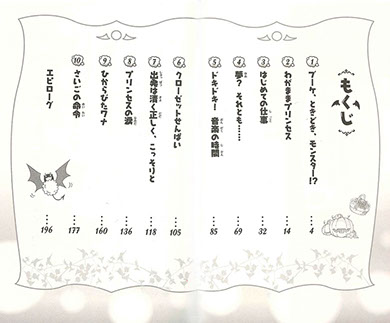 もくじ
1 ブーケ、ときどき、モンスター!? …… 4
2 わがままプリンセス …… 14
3 はじめての仕事 …… 32
4 夢? それとも…… …… 69
5 ドキドキ! 音楽の時間 …… 85
6 クローゼットせんぱい …… 105
7 出発は清く正しく、こっそりと …… 118
8 プリンセスの涙 …… 136
9 ひからびたワナ …… 160
10 さいごの命令 …… 177
エピローグ …… 196